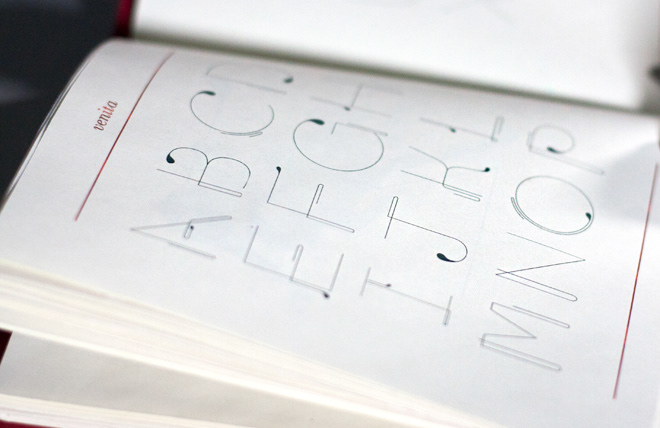 venita
A B C D
E F G H
I J K L
M N O P